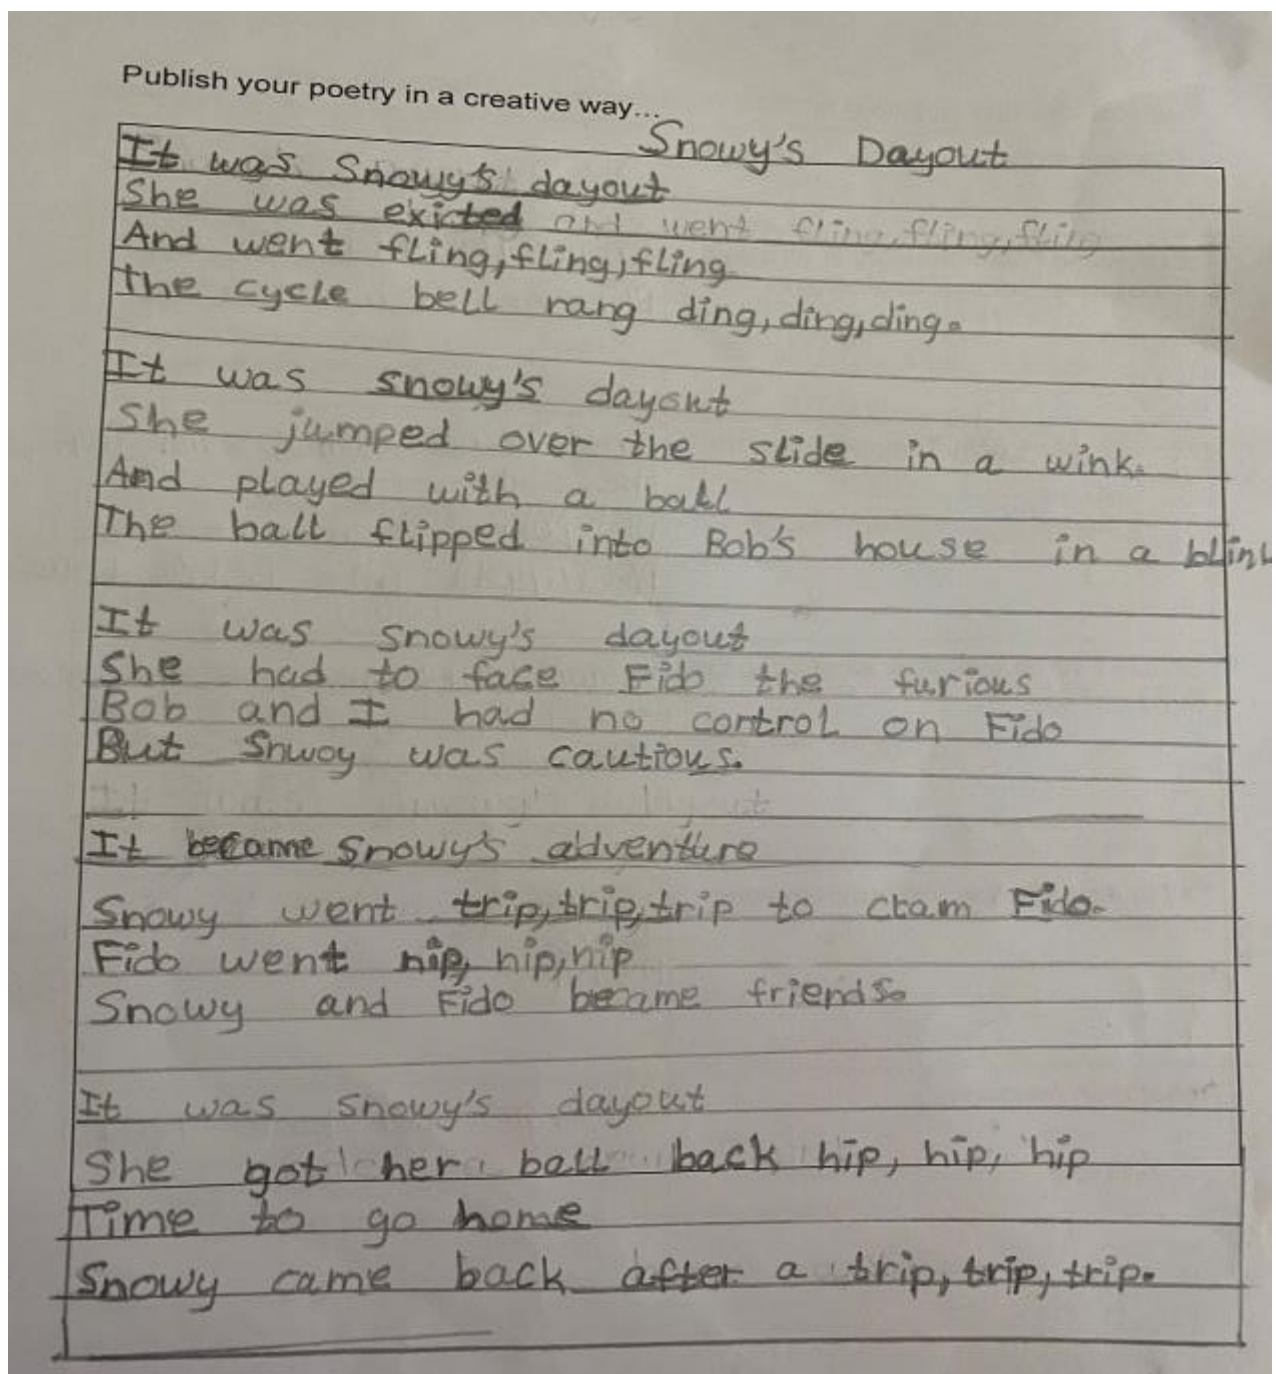 Publish your poetry in a creative way...
Snowy's Dayout
It was Snowy's dayout
She was exicted and went fling, fling, fling
And went fling, fling, fling
The cycle bell rang ding, ding, ding.
It was snowy's dayout
She jumped over the slide in a wink.
And played with a ball
The ball flipped into Bob's house in a blink
It was snowy's dayout
She had to face Fido the furious
Bob and I had no control on Fido
But Snwoy was cautious.
It became Snowy's adventure
Snowy went trip, trip, trip to clam Fido.
Fido went nip, nip, nip
Snowy and Fido became friends.
It was snowy's dayout
She got her ball back hip, hip, hip
Time to go home
Snowy came back after a trip, trip, trip.